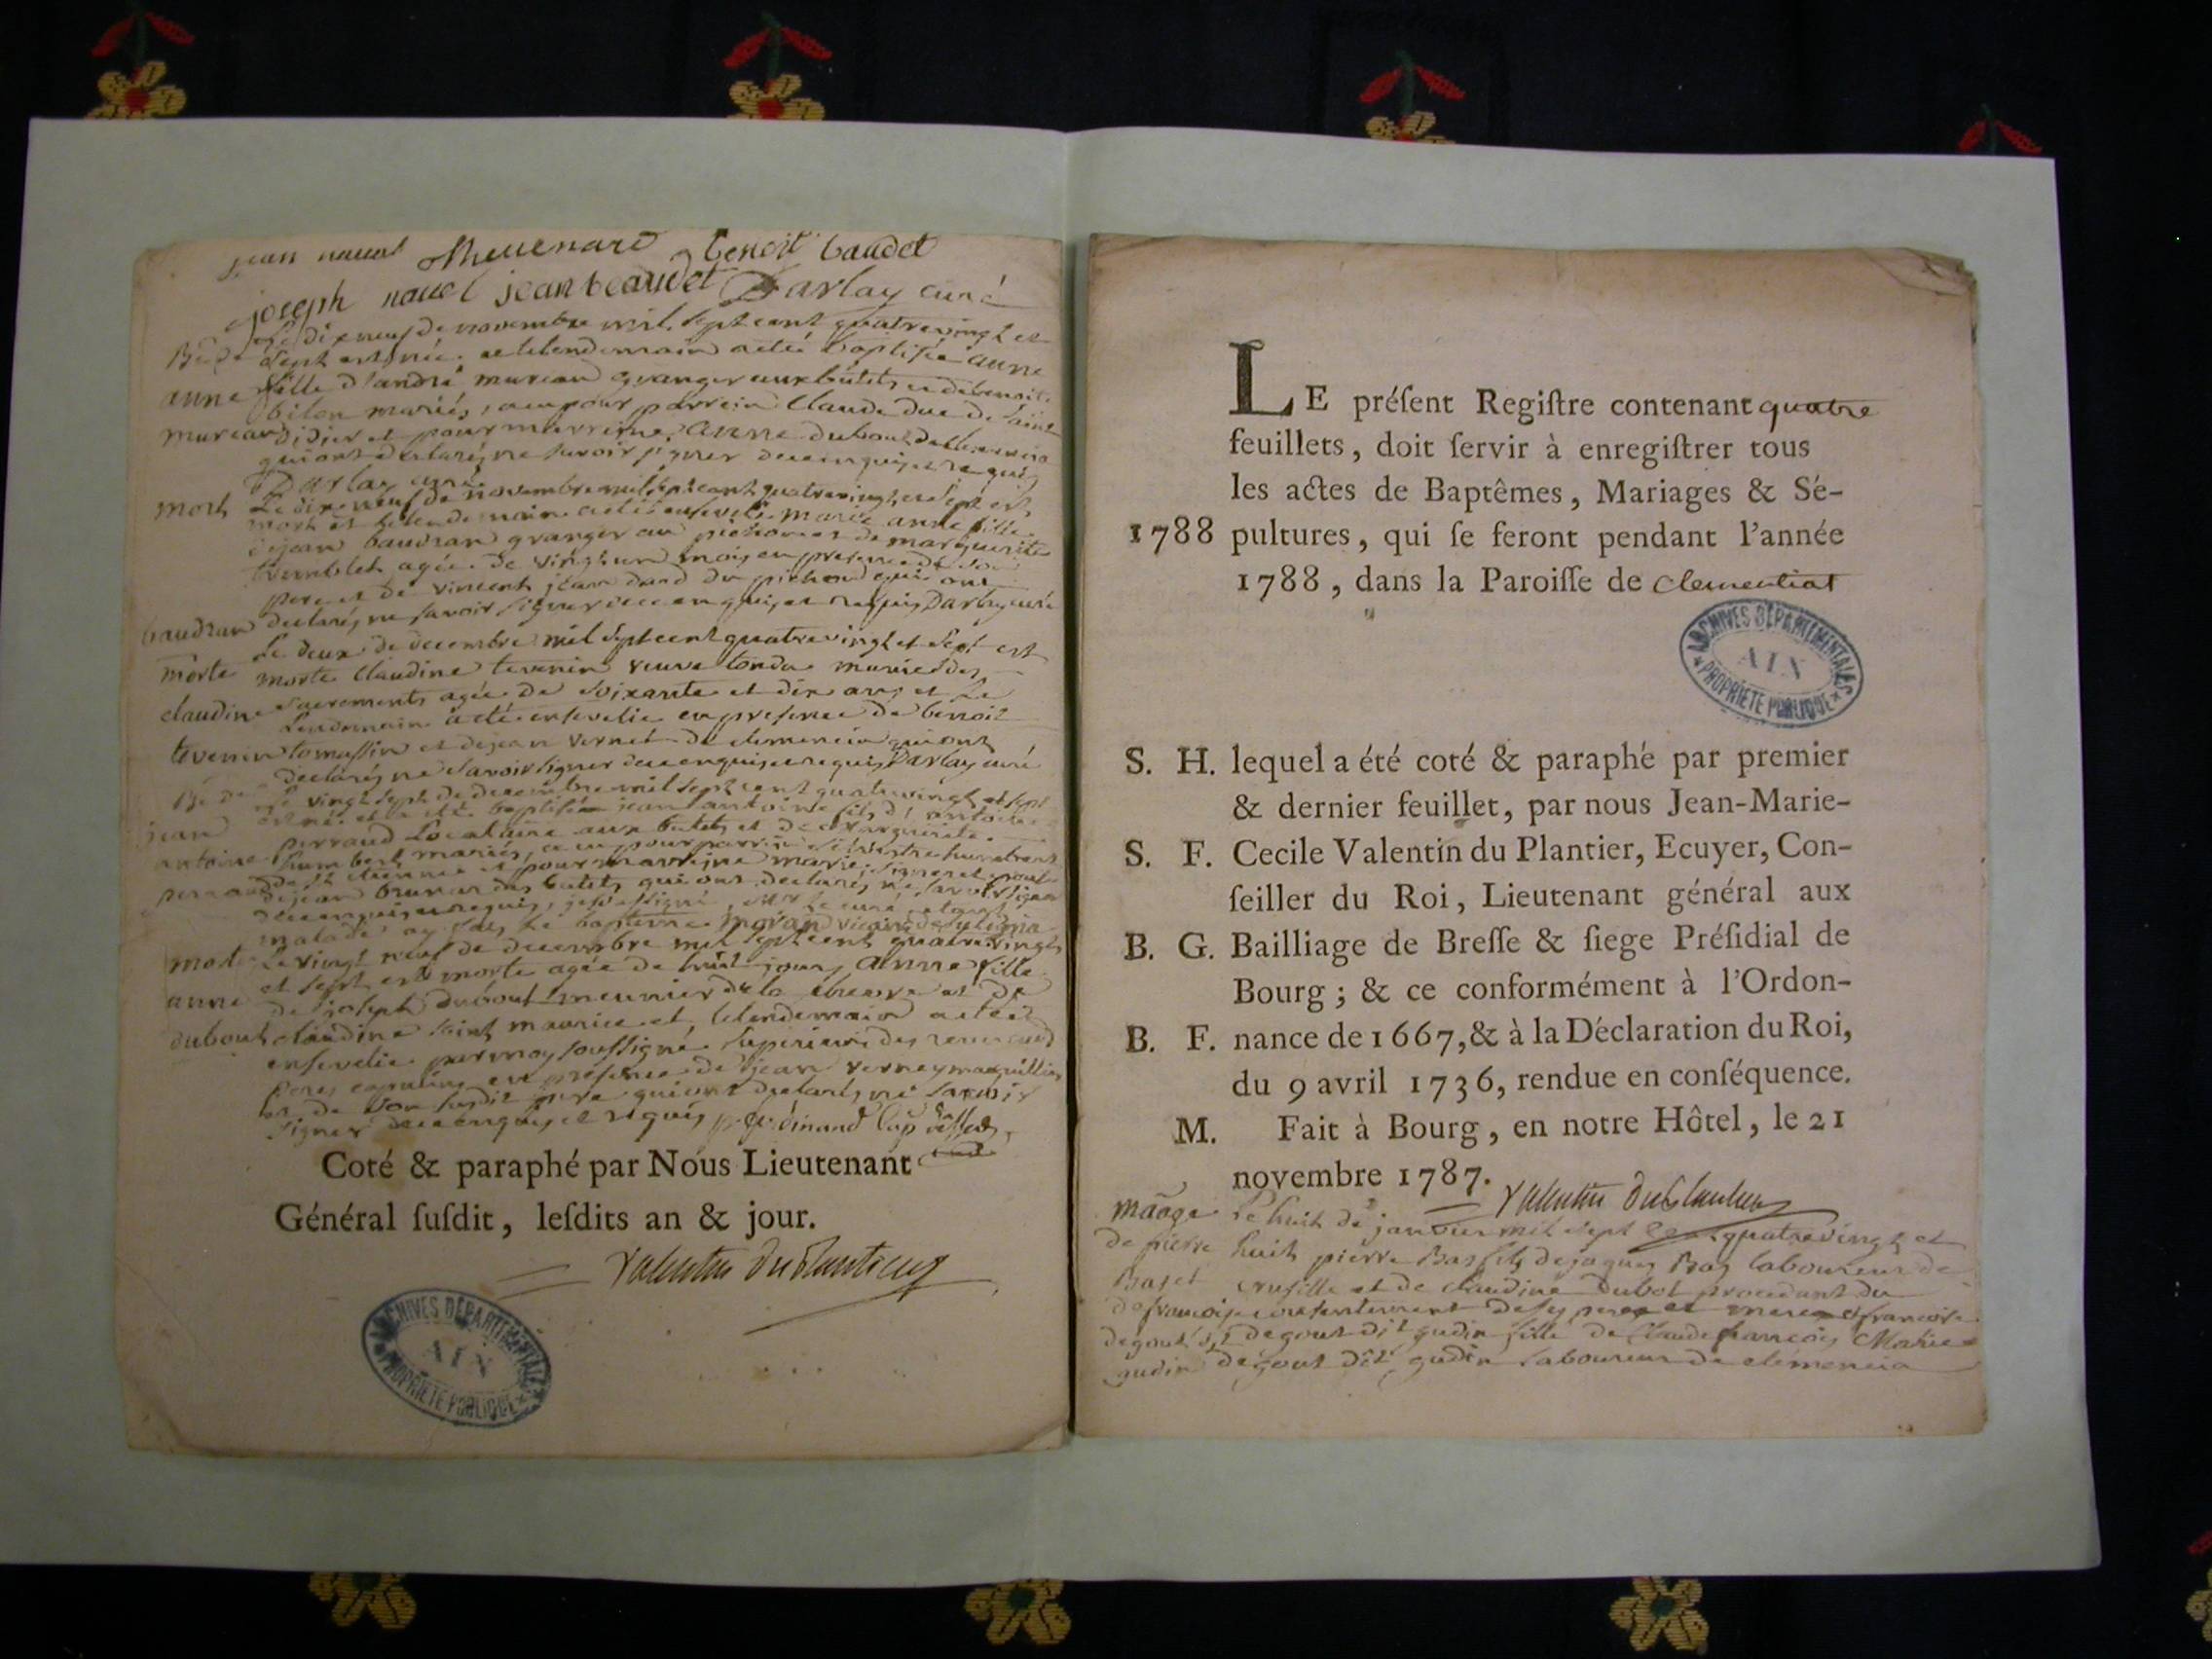 jean nauel Theuenard benoit baudet
joseph nauel jean beaudet Darlay curé
Le dixneuf de novembre mil sept cent quatrevingt et
Bê de sept est née et le lendemain a eté baptisée anne
anne fille d'andré mureau granger aux butets et de benoite
bilon mariés, a eu pour parrein Claude duc de Saint
mureau didier et pour marreine anne dubout de clemencia
qui ont declarés ne savoir signer de ce enquis et requis
Darlay curé
mort Le dixneuf de novembre mil sept cent quatrevingt et sept est
mort et le lendemain a eté ensevelie marie anne fille
de jean baudran granger au pichon et de marguerite
tremblet agée de vingt un mois en presence de son
pere et de vincent jean dard du pichon qui ont
baudran declarés ne savoir signer de ce enquis et requis Darlay curé
Le deux de decembre mil sept cent quatrevingt et sept est
morte morte Claudine tevenin veuve tondu munie des
claudine sacrements agée de soixante et dix ans et le
lendemain a eté ensevelie en presence de benoit
tevenin tomassin et de jean vernet de clemencia qui ont
declarés ne savoir signer de ce enquis et requis Darlay curé
Bê de Le vingt sept de decembre mil sept cent quatrevingt et sept
jean est né et a eté baptisé jean antoine fils d'antoine
perraud Locataire aux butets et de marguerite
antoine humbert mariés, a eu pour parrein silvestre humbert
perraud de st etienne et pour marreine marie
de jean brunet des butets qui ont declarés ne savoir signer
de ce enquis et requis, je soussigné, Mr le curé etant
malade ay fait le bapteme moyan vicaire
morte Le vingt neuf de decembre mil sept cent quatre vingt
et sept est morte agée de huit jours anne fille
anne de joseph dubout meunier de la et de
dubout claudine saint maurice et le lendemain a eté
ensevelie par moy soussigné superieur des reverends
peres capucins en presence de jean verney marguillier
et de son susdit pere qui ont declarés ne savoir
signer de ce enquis et requis p. ferdinand Cap
Coté & paraphé par Nous Lieutenant
Général ſuſdit, leſdits an & jour.
Valentin Duplantier
ARCHIVES DÉPARTEMENTALES
AIN
PROPRIÉTÉ PUBLIQUE
LE préſent Regiſtre contenant quatre
feuillets, doit ſervir à enregiſtrer tous
les actes de Baptêmes, Mariages & Sé-
1788 pultures, qui ſe feront pendant l'année
1788, dans la Paroiſſe de clementiat
ARCHIVES DÉPARTEMENTALES
AIN
PROPRIÉTÉ PUBLIQUE
S. H. lequel a été coté & paraphé par premier
& dernier feuillet, par nous Jean-Marie-
S. F. Cecile Valentin du Plantier, Ecuyer, Con-
ſeiller du Roi, Lieutenant général aux
B. G. Bailliage de Breſſe & ſiege Préſidial de
Bourg; & ce conformément à l'Ordon-
B. F. nance de 1667, & à la Déclaration du Roi,
du 9 avril 1736, rendue en conſéquence.
M. Fait à Bourg, en notre Hôtel, le 21
novembre 1787. Valentin Duplantier
Mãage Le huit de janvier mil sept cent quatrevingt et
de pierre huit pierre Bas fils de jaques Bas laboureur de
Bas et crusille et de claudine Dubot procedant du
de françoise consentement de ses pere et mere et françoise
degout dit degout dit gudin fille de Claude françois Marie
gudin degout dit gudin Laboureur de clemencia